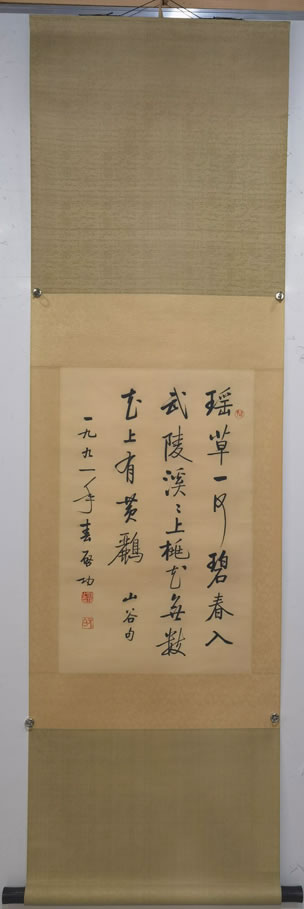 瑶草一何碧春入
武陵溪〻上桃花無数
花上有黄鸝
山谷句
一九九一年春啓功